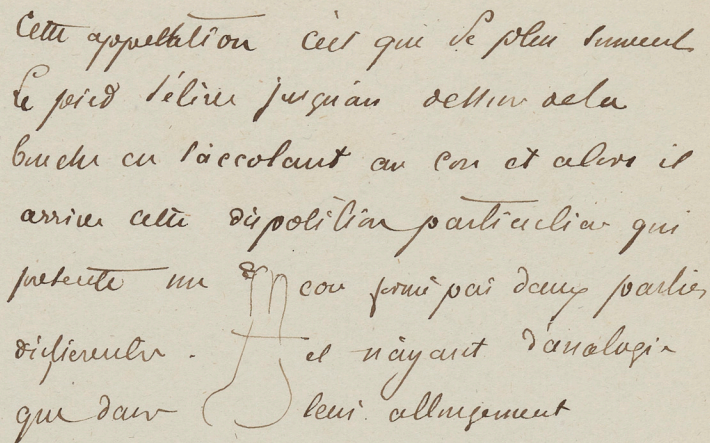 Cette appellation c'est que le plus souvent
le pied s'élève jusqu'au dessus de la
bouche en s'accolant au cou et alors il
arrive cette disposition particulière qui
présente un cou formé par deux parties
différentes. et n'ayant d'analogie
que dans leur allongement